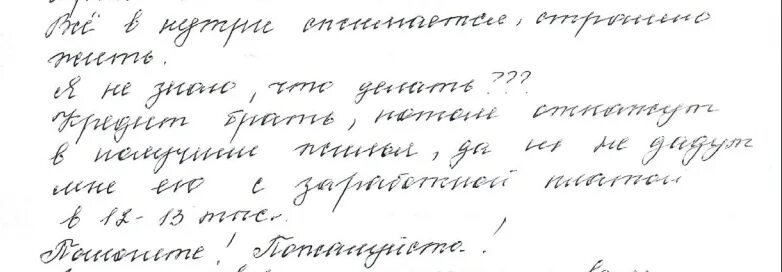 Всё в нутри сжимается, страшно
жить.
Я не знаю, что делать???
Кредит брать, потом откажут
в получении жилья, да и не дадут
мне его с заработной платой
в 12-13 тыс.
Помогите! Пожалуйста!